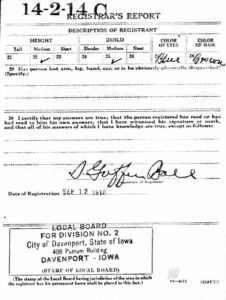 14-2-14 C
REGISTRAR'S REPORT
DESCRIPTION OF REGISTRANT
HEIGHT BUILD COLOR OF EYES COLOR OF HAIR
Tall Medium Short Slender Medium Stout
21 22 ✓ 23 24 25 ✓ 26 27 Blue 28 Brown
29 Has person lost arm, leg, hand, eye, or is he obviously physically disqualified?
(Specify.)
30 I certify that my answers are true; that the person registered has read or has
had read to him his own answers; that I have witnessed his signature or mark,
and that all of his answers of which I have knowledge are true, except as follows:
Date of Registration SEP 12 1918
LOCAL BOARD
FOR DIVISION NO. 2
City of Davenport, State of Iowa
408 Putnam Building
DAVENPORT - IOWA
(STAMP OF LOCAL BOARD)
(The stamp of the Local Board having jurisdiction of the area in which
the registrant has his permanent home shall be placed in this box.)